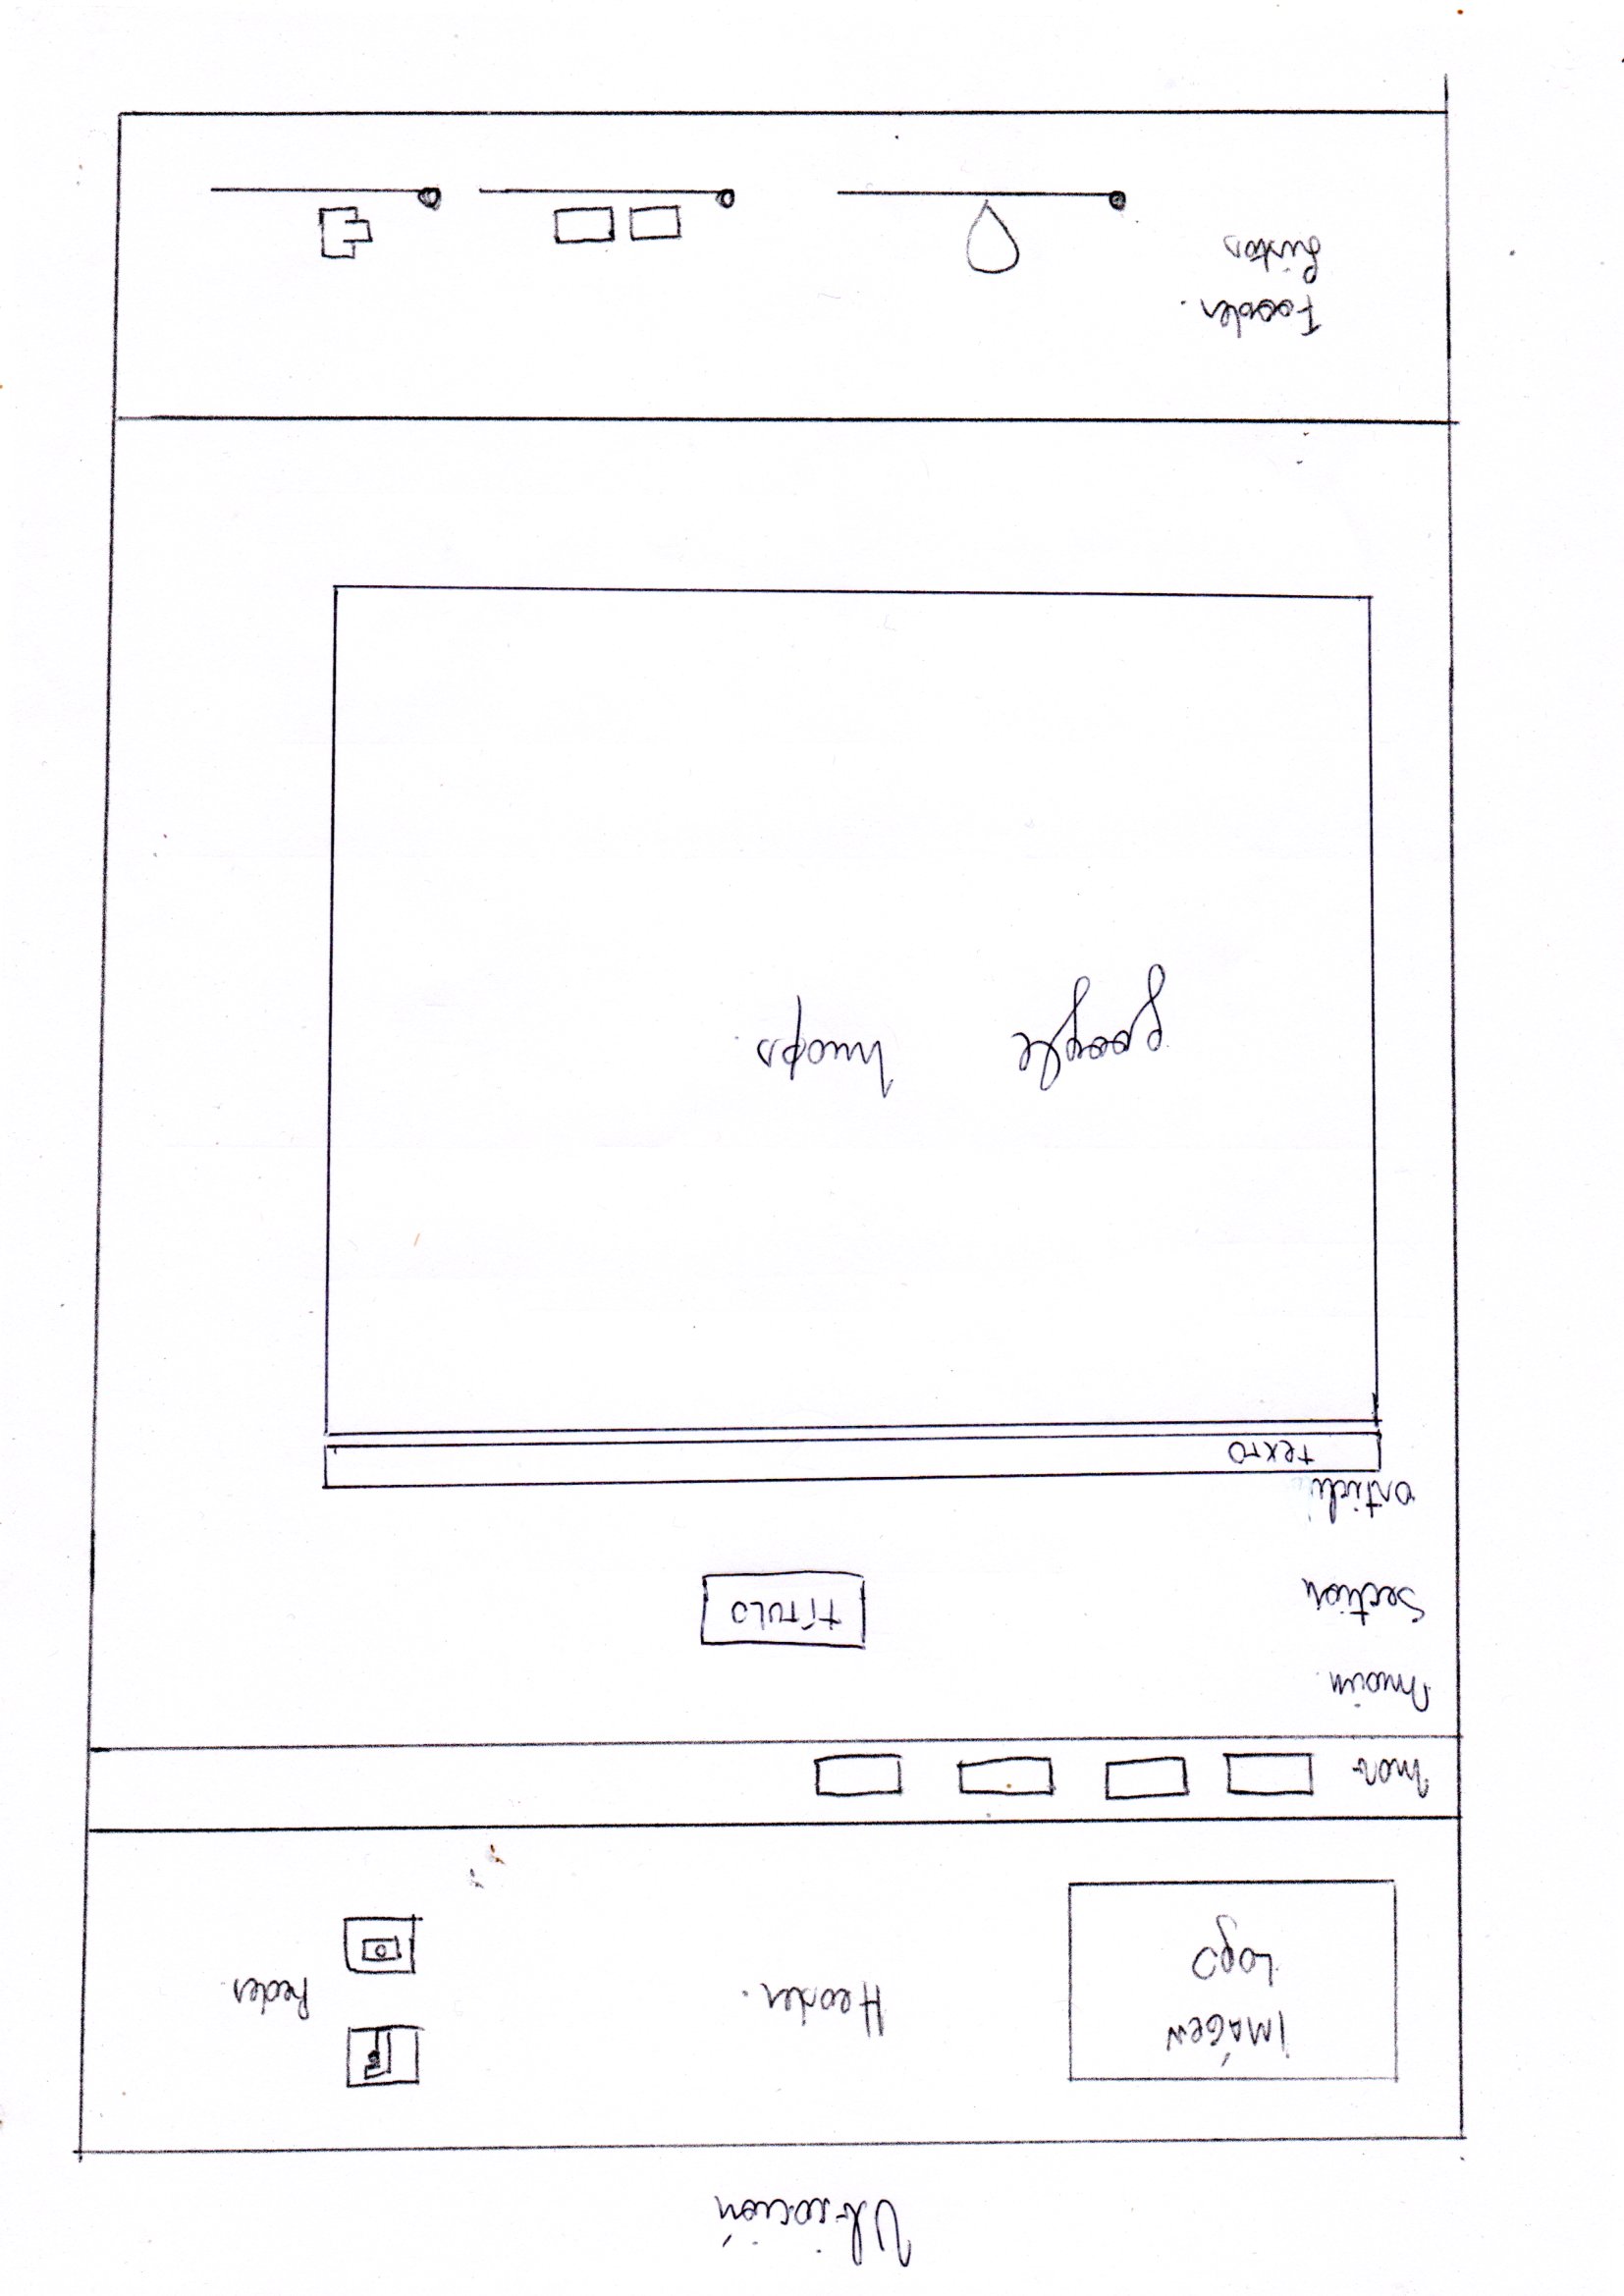 Ubicación
IMÁGEN
LOGO
Header.
F
Redes.
nav
main.
Section
TÍTULO
article
TEXTO
google maps.
Fooder.
Listas